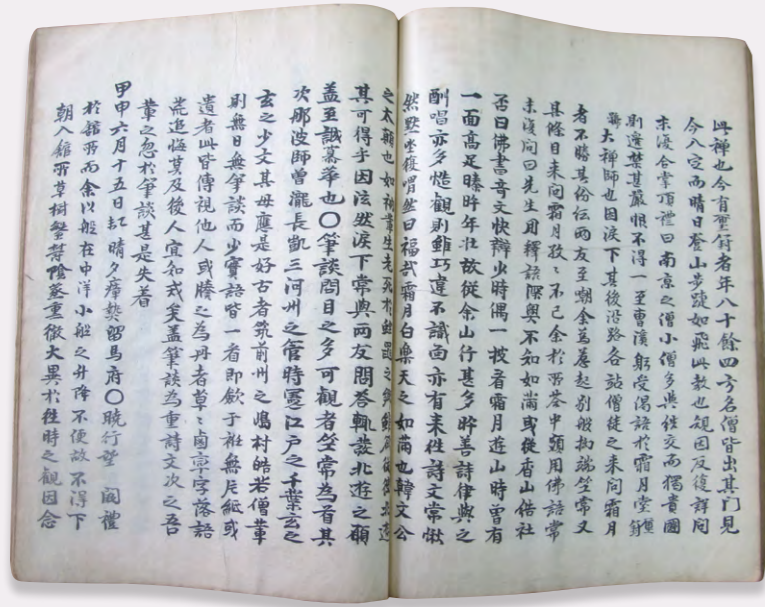 此禪也今有聖符者年八十餘四方名僧皆出其門見
今入定而晴日登山步踄如飛此教也規因反復詳問
末復合掌頂禮曰南京之僧小僧多與往交而獨貴國
則邊禁甚嚴恨不得一至曹溪躬受偈語於霜月堂聖符
兩大禪師也因淚下其後沿路各站僧徒之來問霜月
者不勝其紛紜兩友至朝余為惹起別般抝端坐常又
其條目來問霜月孜々不已余於答中頗用佛語常
末復問曰先生用釋語深奧不知如滿或從香山偕社
否曰佛書奇文快辯少時偶一披看霜月遊山時曾有
一面高足臻旿年壯故從余山行甚多旿善詩律與之
酬唱亦多慥觀則雖巧違不識面亦有來往詩文常愀
然默坐復喟然曰福哉霜月白樂天之如滿也韓文公
之太顛也如
其可得乎因泫然淚下常與兩友問答輒發北遊之願
盖至誠慕華也〇筆談問目之多可觀者坐常為首其
次那波師曾瀧長凱三河州之管時憲江戶之千葉玄之
玄之少文其母應是好古者筑前州之嶋村皓若僧軰
則無日無筆談而少實語皆一者即飲于袵無片紙或
遺者此皆傳視他人或謄之為冊者草々間字落語
荒追悔莫及後人宜知戒矣盖筆談為重詩文次之吾
軰之忽於筆談甚是失着
甲申六月十五日缸晴夕瘴熱留馬府〇曉行望闕禮
於舘所而余以船在中洋小船之升降不便故不得下
朝入舘所草樹蟄薈陰蒸重徼大異於徃時之觀因念